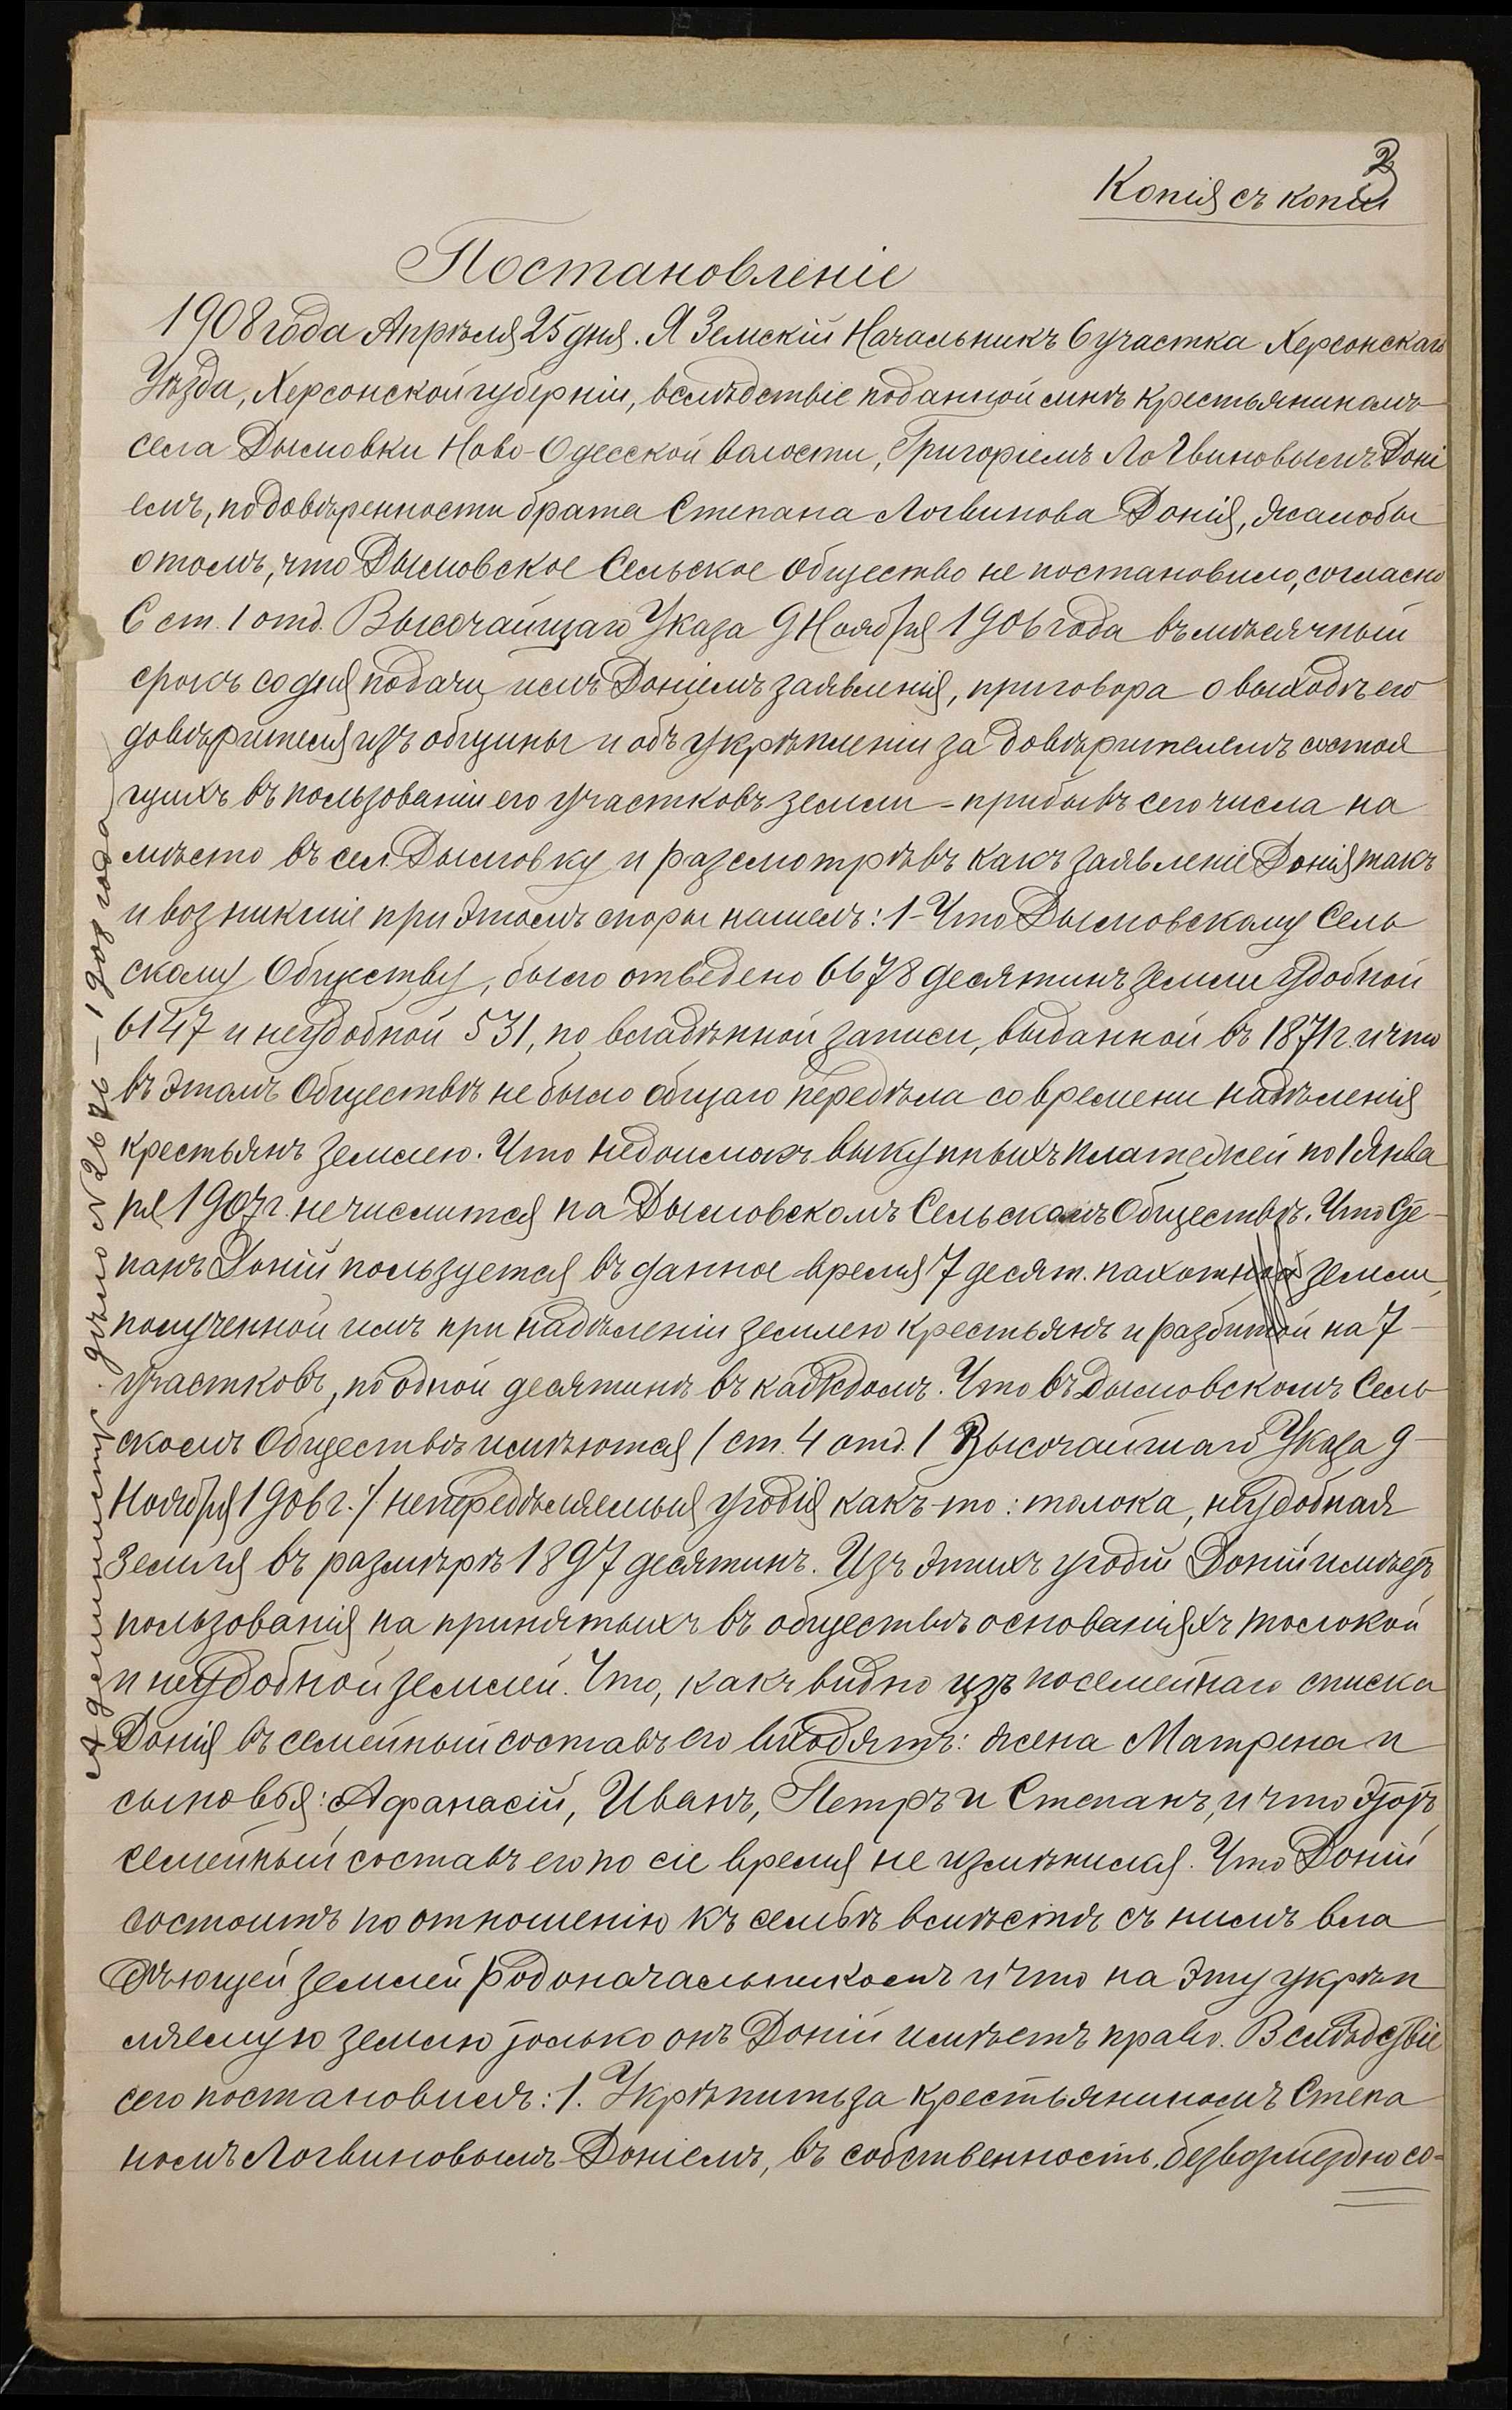 2
Копія съ копіи
Постановленіе
1908 года Апрѣля 25 дня. Я Земскій Начальникъ 6 участка Херсонскаго
Уѣзда, Херсонской губерніи, вслѣдствіе поданной мнѣ крестьяниномъ
села Дымовки Ново-Одесской волости, Григоріемъ Логвиновымъ Доні
емъ, по довѣренности брата Степана Логвинова Донія, жалобы
о томъ, что Дымовское Сельское Общество не постановило, согласно
6 ст. 1 отд. Высочайшаго Указа 9 Ноября 1906 года въ мѣсячный
срокъ со дня подачи имъ Доніемъ заявленія, приговора о выходѣ его
довѣрителя изъ общины и объ укрѣпленіи за довѣрителемъ состоя
щихъ въ пользованіи его участковъ земли - прибывъ сего числа на
мѣсто въ сел. Дымовку и разсмотрѣвъ какъ заявленіе Донія такъ
и возникшіе при этомъ споры нашелъ: 1- Что Дымовскому Сель
скому Обществу, было отведено 6678 десятинъ земли удобной
6147 и неудобной 531, по владѣнной записи, выданной въ 1871 г. и что
въ этомъ Обществѣ не было общаго передѣла со времени надѣленія
крестьянъ землею. Что недоимокъ выкупныхъ платежей по 1 Янва
ря 1907 г. не числится на Дымовскомъ Сельскомъ Обществѣ. Что Сте-
панъ Доній пользуется въ данное время 7 десят. пахотной земли,
полученной имъ при надѣленіи землею крестьянъ и разбитой на 7-
участковъ, по одной десятинѣ въ каждомъ. Что въ Дымовскомъ Сель
скомъ Обществѣ имѣются / ст. 4 отд. 1 Высочайшаго Указа 9-
Ноября 1906 г. / непередѣляемыя угодія какъ-то: толока, неудобная
Земля въ размѣрѣ 1897 десятинъ. Изъ этихъ угодій Доній имѣетъ
пользованія на принятыхъ въ обществѣ основаніяхъ толокой
и неудобной землей. Что, какъ видно изъ посемейнаго списка
Донія въ семейный составъ его входятъ: жена Матрена и
сыновья: Афанасій, Иванъ, Петръ и Степанъ, и что этотъ
семейный составъ его по сіе время не измѣнился. Что Доній
состоитъ по отношенію къ семьѣ вмѣстѣ съ нимъ вла
дѣющей землей родоначальникомъ и что на эту укрѣп
ляемую землю только онъ Доній имѣетъ право. Вслѣдствіе
сего постановилъ: 1. Укрѣпить за крестьяниномъ Степа
номъ Логвиновымъ Доніемъ, въ собственность, безвозмездно со-
Администр. дѣло № 26 – 1909 года